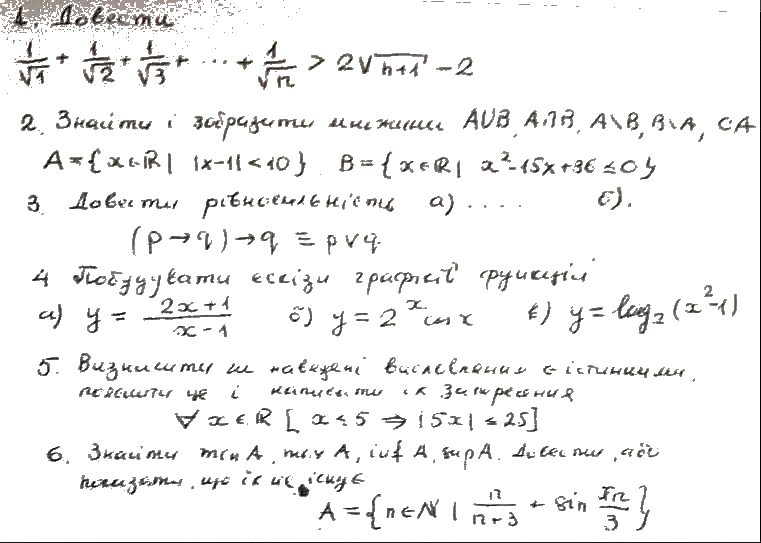 1. Довести
1/√1 + 1/√2 + 1/√3 + ... + 1/√n > 2√n+1 - 2
2. Знайти і зобразити множини A∪B, A∩B, A\B, B\A, CA
A = {x∈ℝ | |x-1| < 10} B = {x∈ℝ | x²-15x+36 ≤ 0}
3. Довести рівносильність а) .... б).
(p → q) → q ≡ p∨q
4 Побудувати ескізи графіків функцій
а) y = 2x+1/x-1 б) y = 2^x cos x в) y = log₂(x²-1)
5. Визначити чи наведені висловлення є істинними,
пояснити це і написати їх заперечення
∀ x∈ℝ [x ≤ 5 ⇒ |5x| ≤ 25]
6. Знайти min A, max A, inf A, sup A. Довести, або
показати, що їх не існує
A = {n∈ℕ | n/n+3 + sin πn/3}